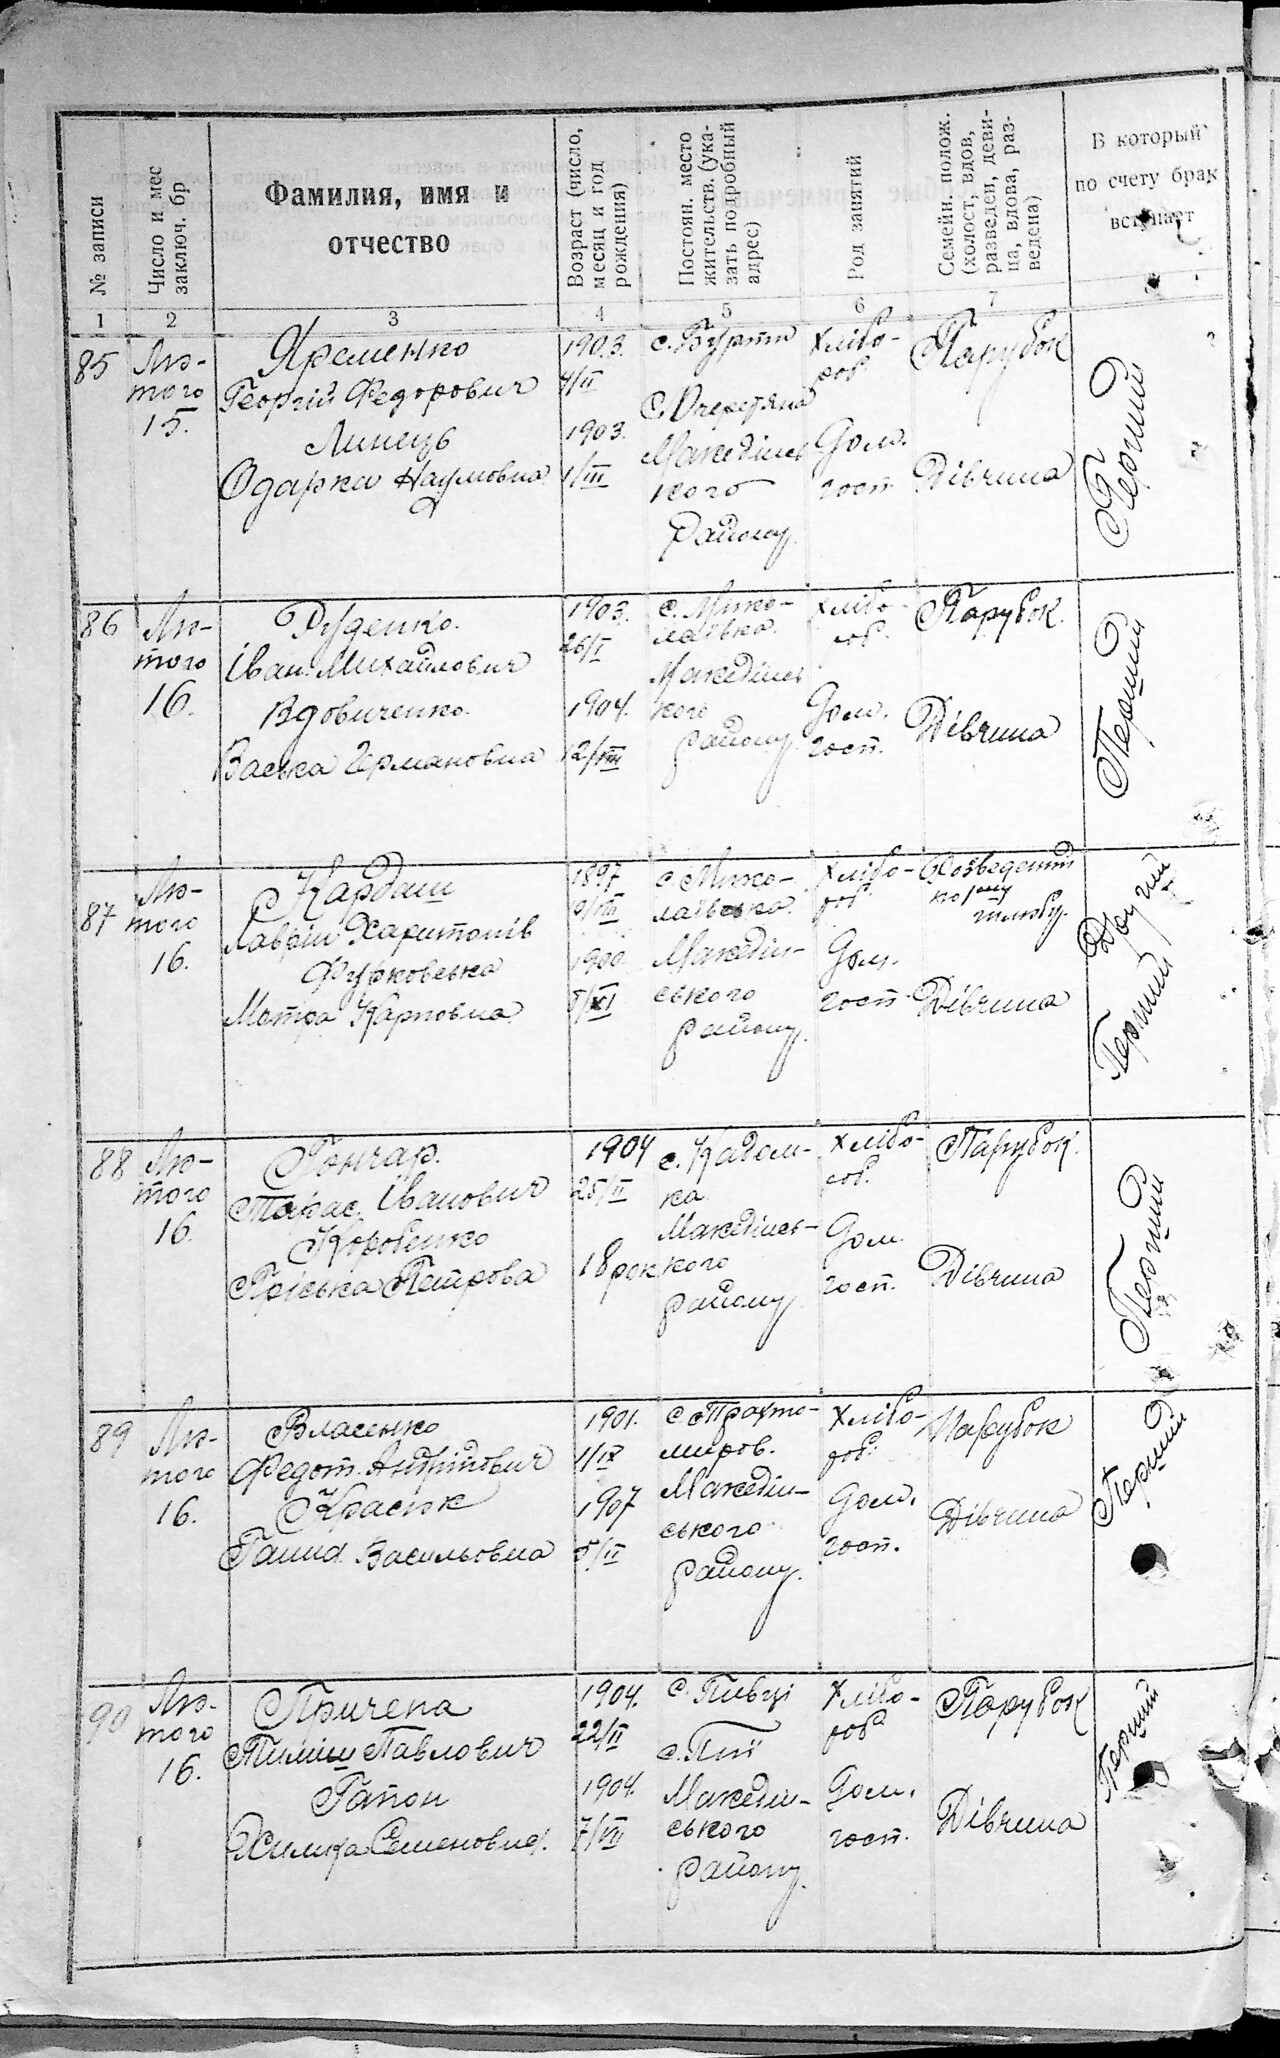 № записи
Число и мес
заключ. бр
Фамилия, имя и
отчество
Возраст (число,
месяц и год
рождения)
Постоян. место
жительств. (ука-
зать подробный
адрес)
Род занятий
Семейн. полож.
(холост, вдов,
разведен, деви-
ца, вдова, раз-
ведена)
В который
по счету брак
вступает
1 2 3 4 5 6 7
85
Лю-
того
15.
Яременко
Георгій Федорович
Линець
Одарка Наумовна
1903.
4/II
1903.
1/III
с. Бурти
с. Очеретяна
Македінсь
кого
району.
Хлібо-
роб.
Дом.
госп.
Парубок
Дівчина
Перший
86
Лю-
того
16.
Руденко.
Іван Михайлович
Вдовиченко.
Васька Германовна
1903.
26/I
1904.
12/VIII
с. Мико-
лаївка.
Македінсь
кого
району.
Хлібо-
роб.
Дом.
госп.
Парубок.
Дівчина
Перший
87
Лю-
того
16.
Кардаш
Лаврін Харитонів
Фурковська
Мотра Карповна
1897
1900
5/XI
с. Мико-
лаївська.
Македін-
ського
району.
Хлібо-
роб
Дом.
госп.
Розведений
по
шлюбу.
Дівчина
Другий
Перший
88
Лю-
того
16.
Гончар.
Тарас Іванович
Коровенко
Пріська Петрова
1904
25/II
18 рок
с. Кадом-
ка.
Македінсь-
кого
району.
Хлібо-
роб.
Дом
госп.
Парубок.
Дівчина
Перший
89
Лю-
того
16.
Власенко
Федот Андрійович
Красюк
Ганна Васильовна
1901.
1/IX
1907
5/II
с. Трахто-
миров.
Македін-
ського
району.
Хлібо-
роб.
Дом.
госп.
Парубок
Дівчина
Перший
90
Лю-
того
16.
Причепа
Тиміш Павлович
Гапон
Химка Семеновна.
1904.
22/II
1904.
7/VII
с. Пивці
с. Пії
Македін-
ського
району.
Хлібо-
роб
Дом.
госп.
Парубок
Дівчина
Перший